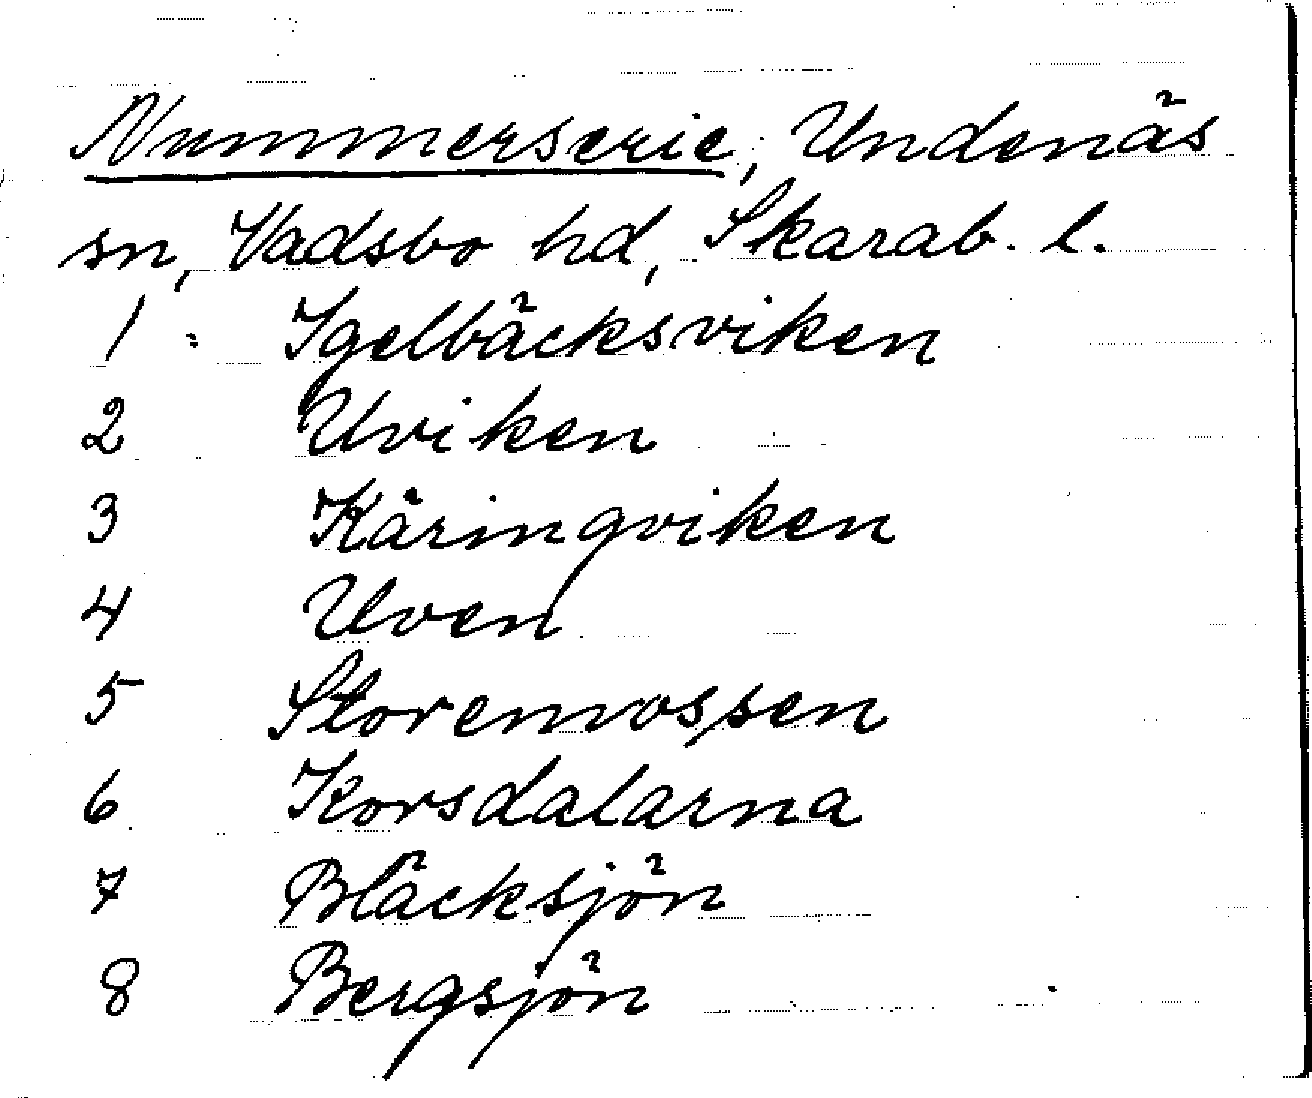 Nummerserie, Undenäs
sn, Vadsbo hd, Skarab. l.
1 Igelbäcksviken
2 Uviken
3 Käringviken
4 Uven
5 Storemossen
6 Korsdalarna
7 Bläcksjön
8 Bergsjön